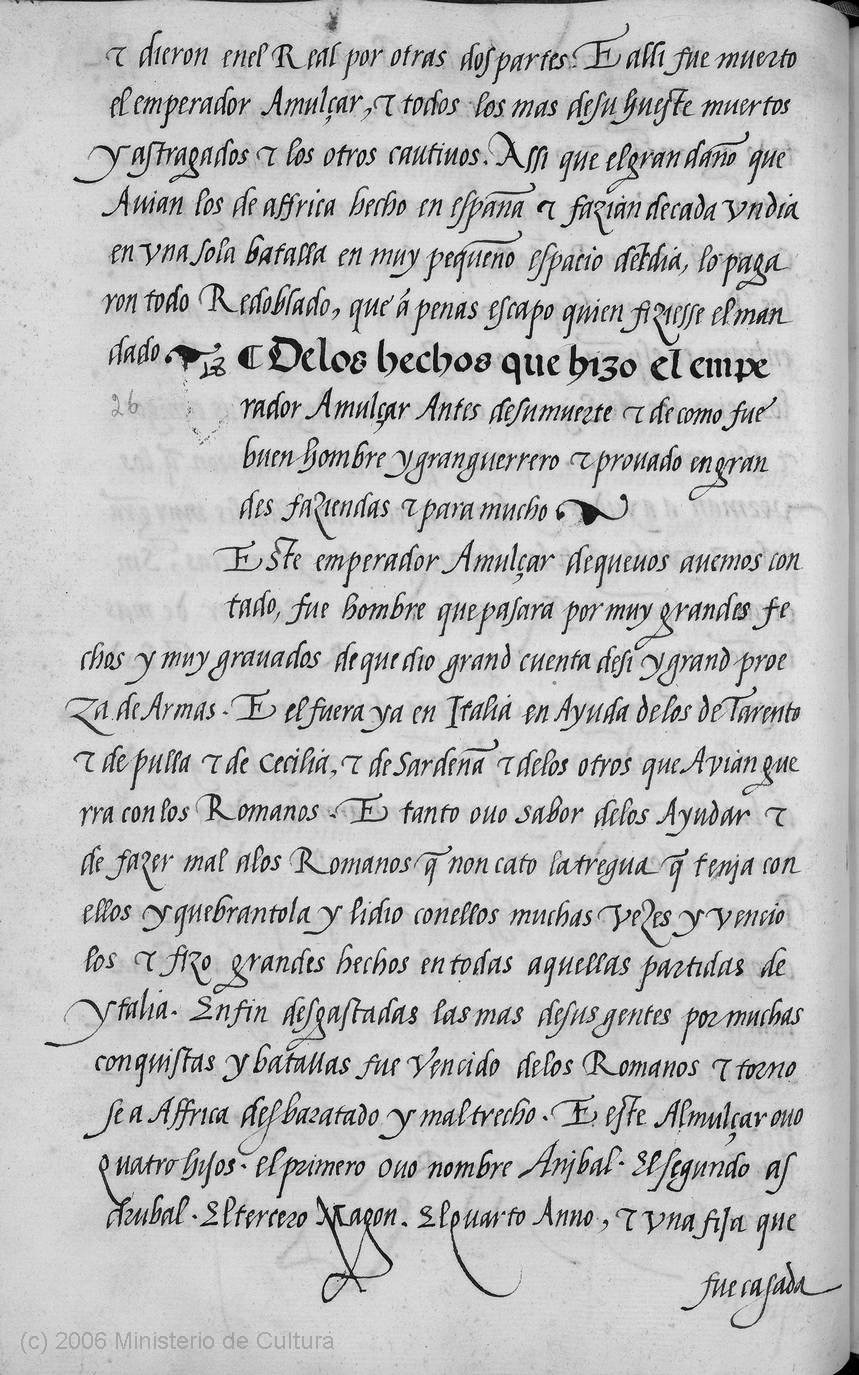 ⁊ dieron enel Real por otras dos partes. E alli fue muerto
el emperador Amulçar, ⁊ todos los mas desu hueste muertos
y astragados ⁊ los otros cautivos. Assi que el gran daño que
Avian los de affrica hecho en españa ⁊ fazian decada vn dia
en vna sola batalla en muy pequeño espacio del dia, lo paga
ron todo Redoblado, que á penas escapo quien fiziesse el man
dado
¶ Delos hechos que hizo el empe
26
rador Amulçar Antes desu muerte ⁊ de como fue
buen hombre y gran guerrero ⁊ provado en gran
des faziendas ⁊ para mucho
Este emperador Amulçar deque vos avemos con
tado, fue hombre que pasara por muy grandes fe
chos y muy gravados de que dio grand cuenta desi y grand proe
za de Armas. E el fuera ya en Italia en Ayuda delos de Tarento
⁊ de pulla ⁊ de Cecilia, ⁊ de Sardeña ⁊ delos otros que Avian gue
rra con los Romanos. E tanto ovo sabor delos Ayudar ⁊
de fazer mal alos Romanos q̃ non cato la tregua q̃ tenja con
ellos y quebrantola y lidio con ellos muchas vezes y vencio
los ⁊ fizo grandes hechos en todas aquellas partidas de
ytalia. Enfin desgastadas las mas desus gentes por muchas
conquistas y batallas fue vencido delos Romanos ⁊ torno
se a Affrica desbaratado y maltrecho. E este Almulçar ovo
quatro hijos. el primero ovo nombre Anjbal. El segundo as
drubal. El tercero Magon. El quarto Anno, ⁊ vna fija que
fue casada
(c) 2006 Ministerio de Cultura